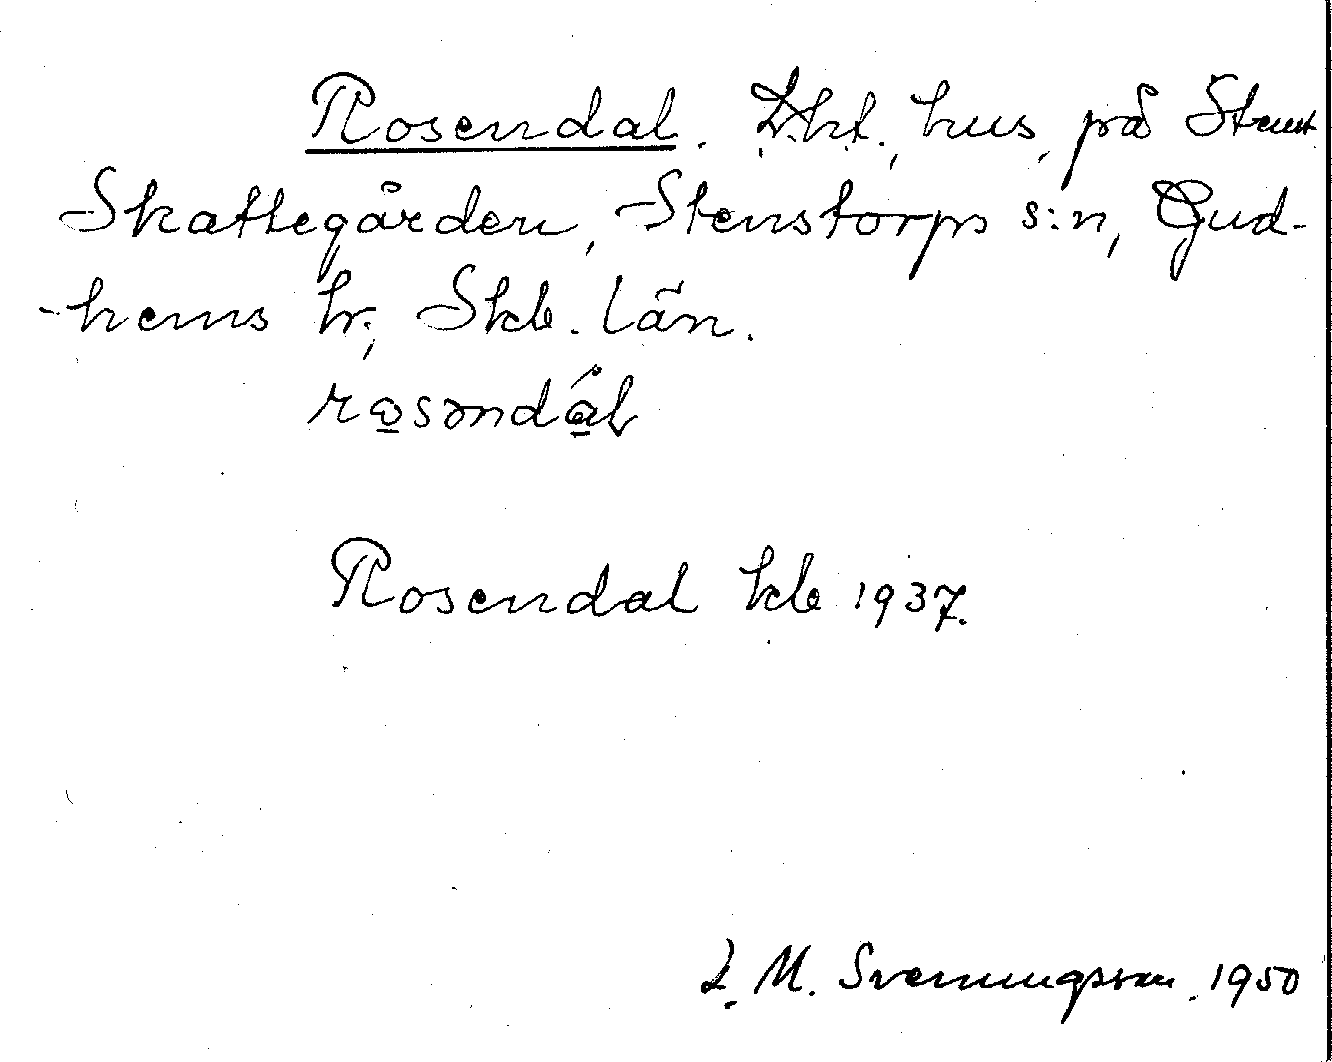 Rosendal. Lht., hus, på Stenst
Skattegården, Stenstorps s:n, Gud-
-hems hr, Skb. län.
rosəndál
Rosendal kb 1937.
L. M. Svenungsson. 1950